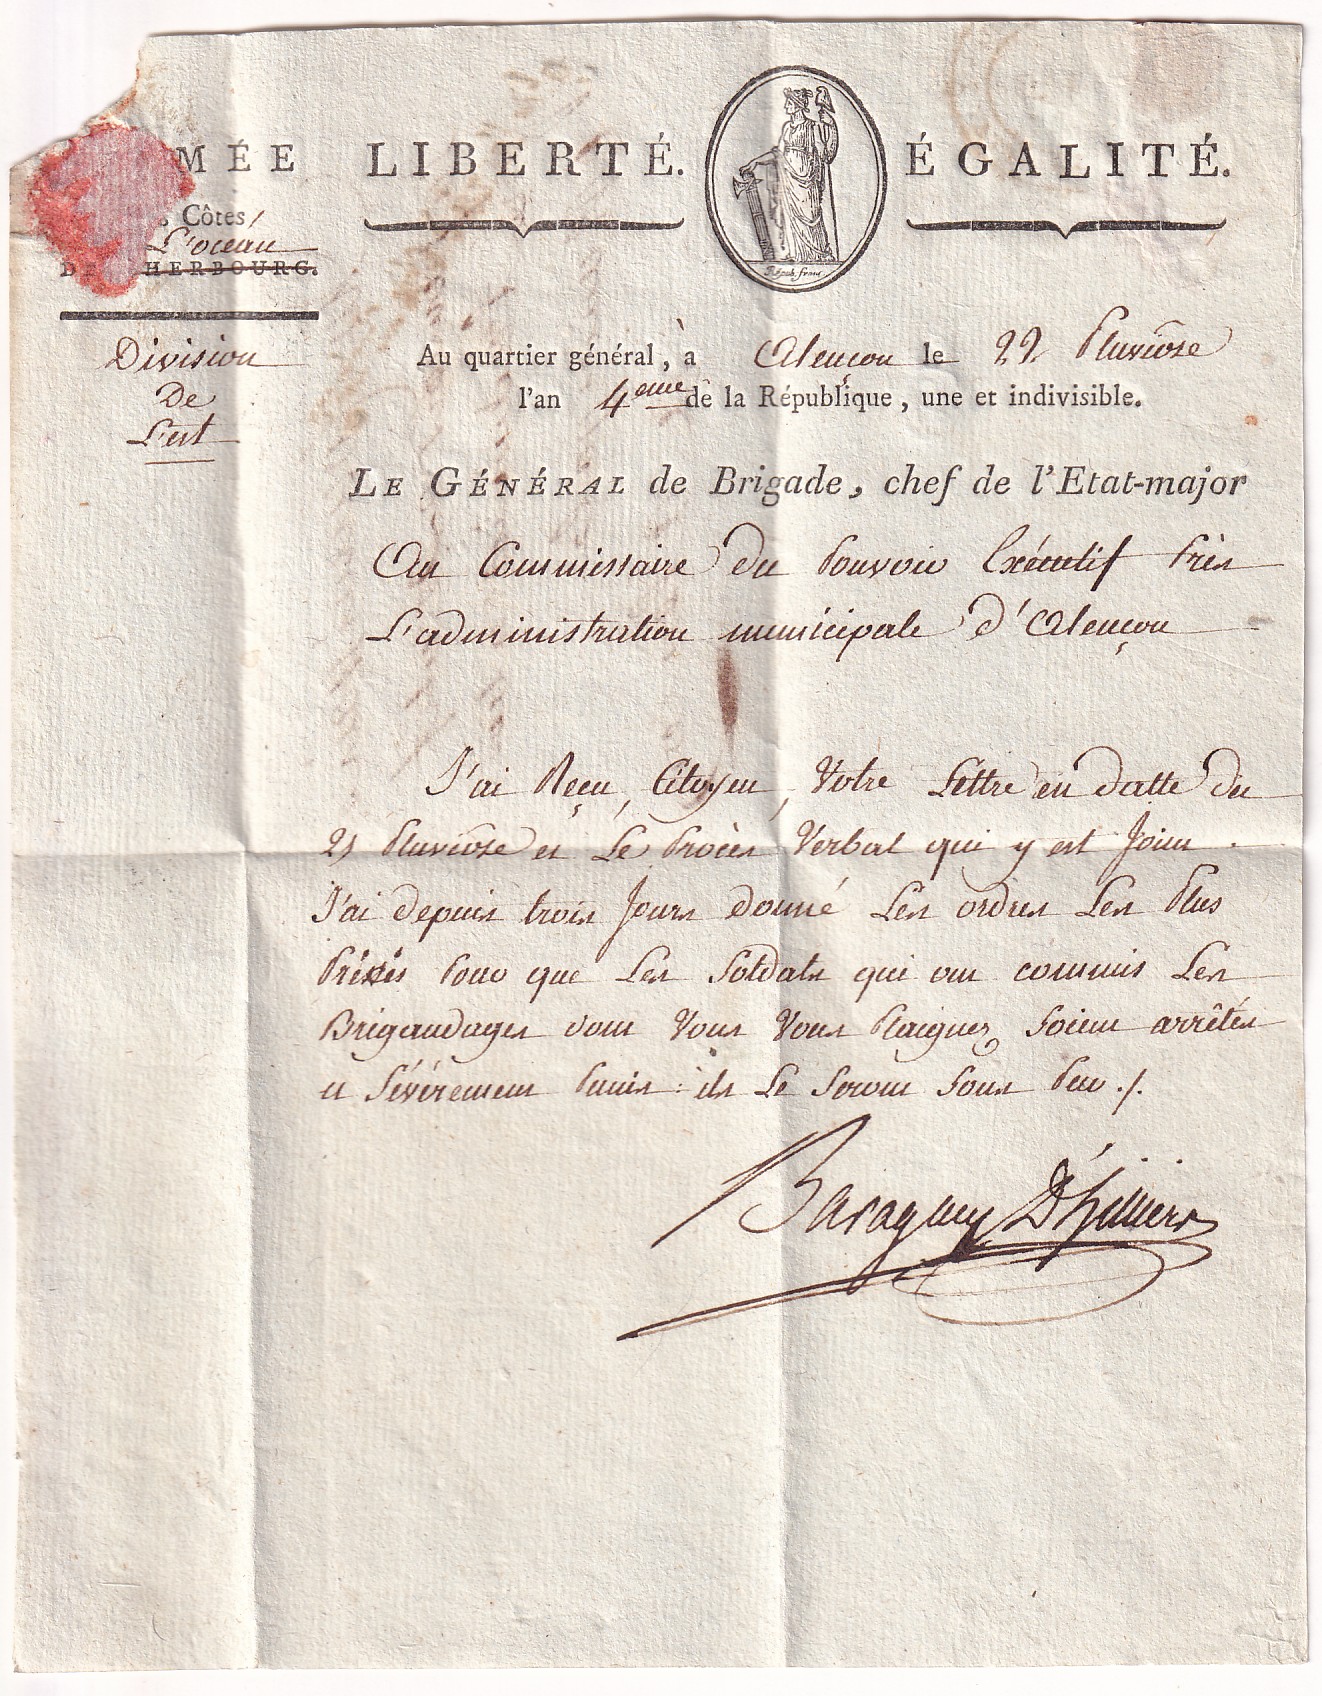 MÉE LIBERTÉ. ÉGALITÉ.
Côtes
L'ocean
HERBOURG.
Répub. franç.
Division
De
L'est
Au quartier général, à Alençon le 22 Pluviôse
l'an 4eme de la République, une et indivisible.
LE GÉNÉRAL de Brigade, chef de l'Etat-major
Au Commissaire du Pouvoir Exécutif Près
L'administration municipale d'Alençon
J'ai Reçu, Citoyen, Votre Lettre en datte du
21 Pluviôse et Le Procès Verbal qui y est Joint.
J'ai depuis trois Jours donné Les ordres Les Plus
Précis Pour que Les Soldats qui ont commis Les
Brigandages dont Vous Vous Plaignez soient arrêtés
et sévèrement Punis : ils Le seront sous Peu ./.
Baraguey D'hilliers